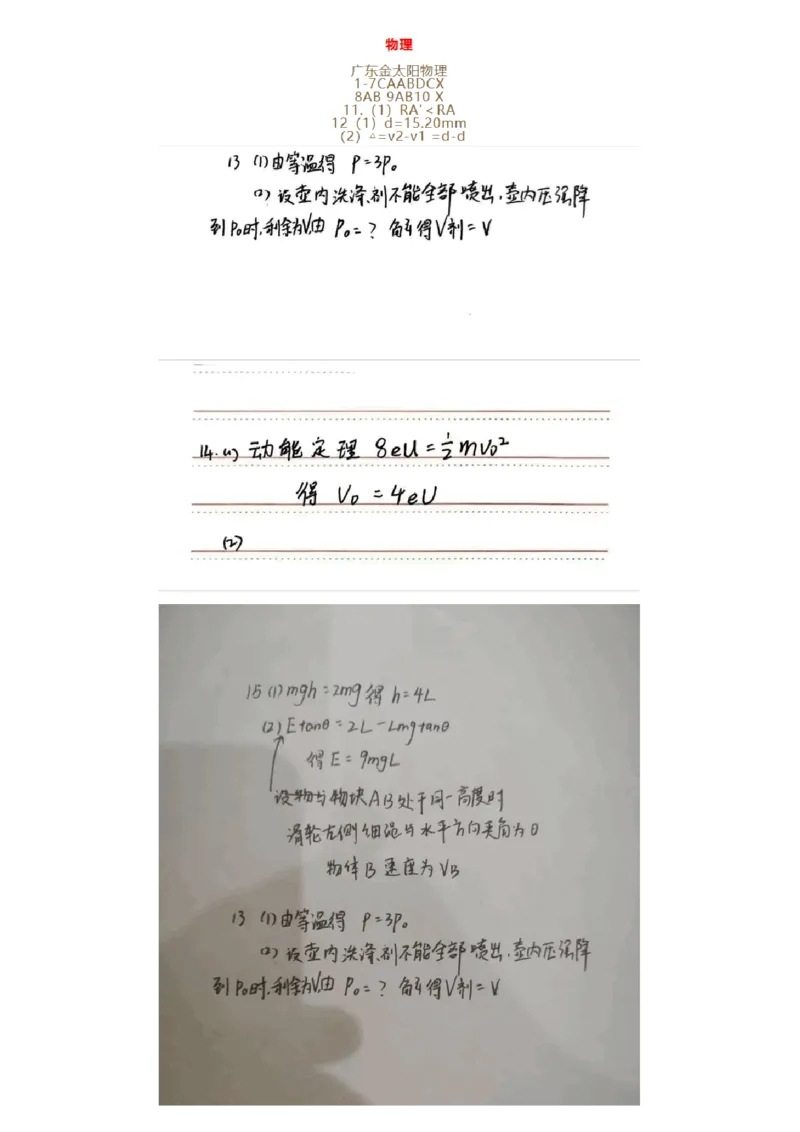 物理
广东金太阳物理
1-7CAABDCX
8AB 9AB10 X
11. (1) RA'<RA
12 (1) d=15.20mm
(2) △=v2-v1 =d-d
13 (1)由等温得 P=3P₀
(2)设壶内洗涤剂不能全部喷出,壶内压强降
到P₀时,剩余为V,由 P₀=? 解得V剂=V
14.(1)动能定理 8eU=½mv₀²
得 V₀=4eU
(2)
15(1)mgh=2mg得 h=4L
(2)Etanθ=2L-Lmgtanθ
得E=9mgL
设物与物块AB处于同一高度时
滑轮左侧细绳与水平方向夹角为θ
物体B速度为VB
13 (1)由等温得 P=3P₀
(2)设壶内洗涤剂不能全部喷出,壶内压强降
到P₀时,剩余为V,由 P₀=? 解得V剂=V